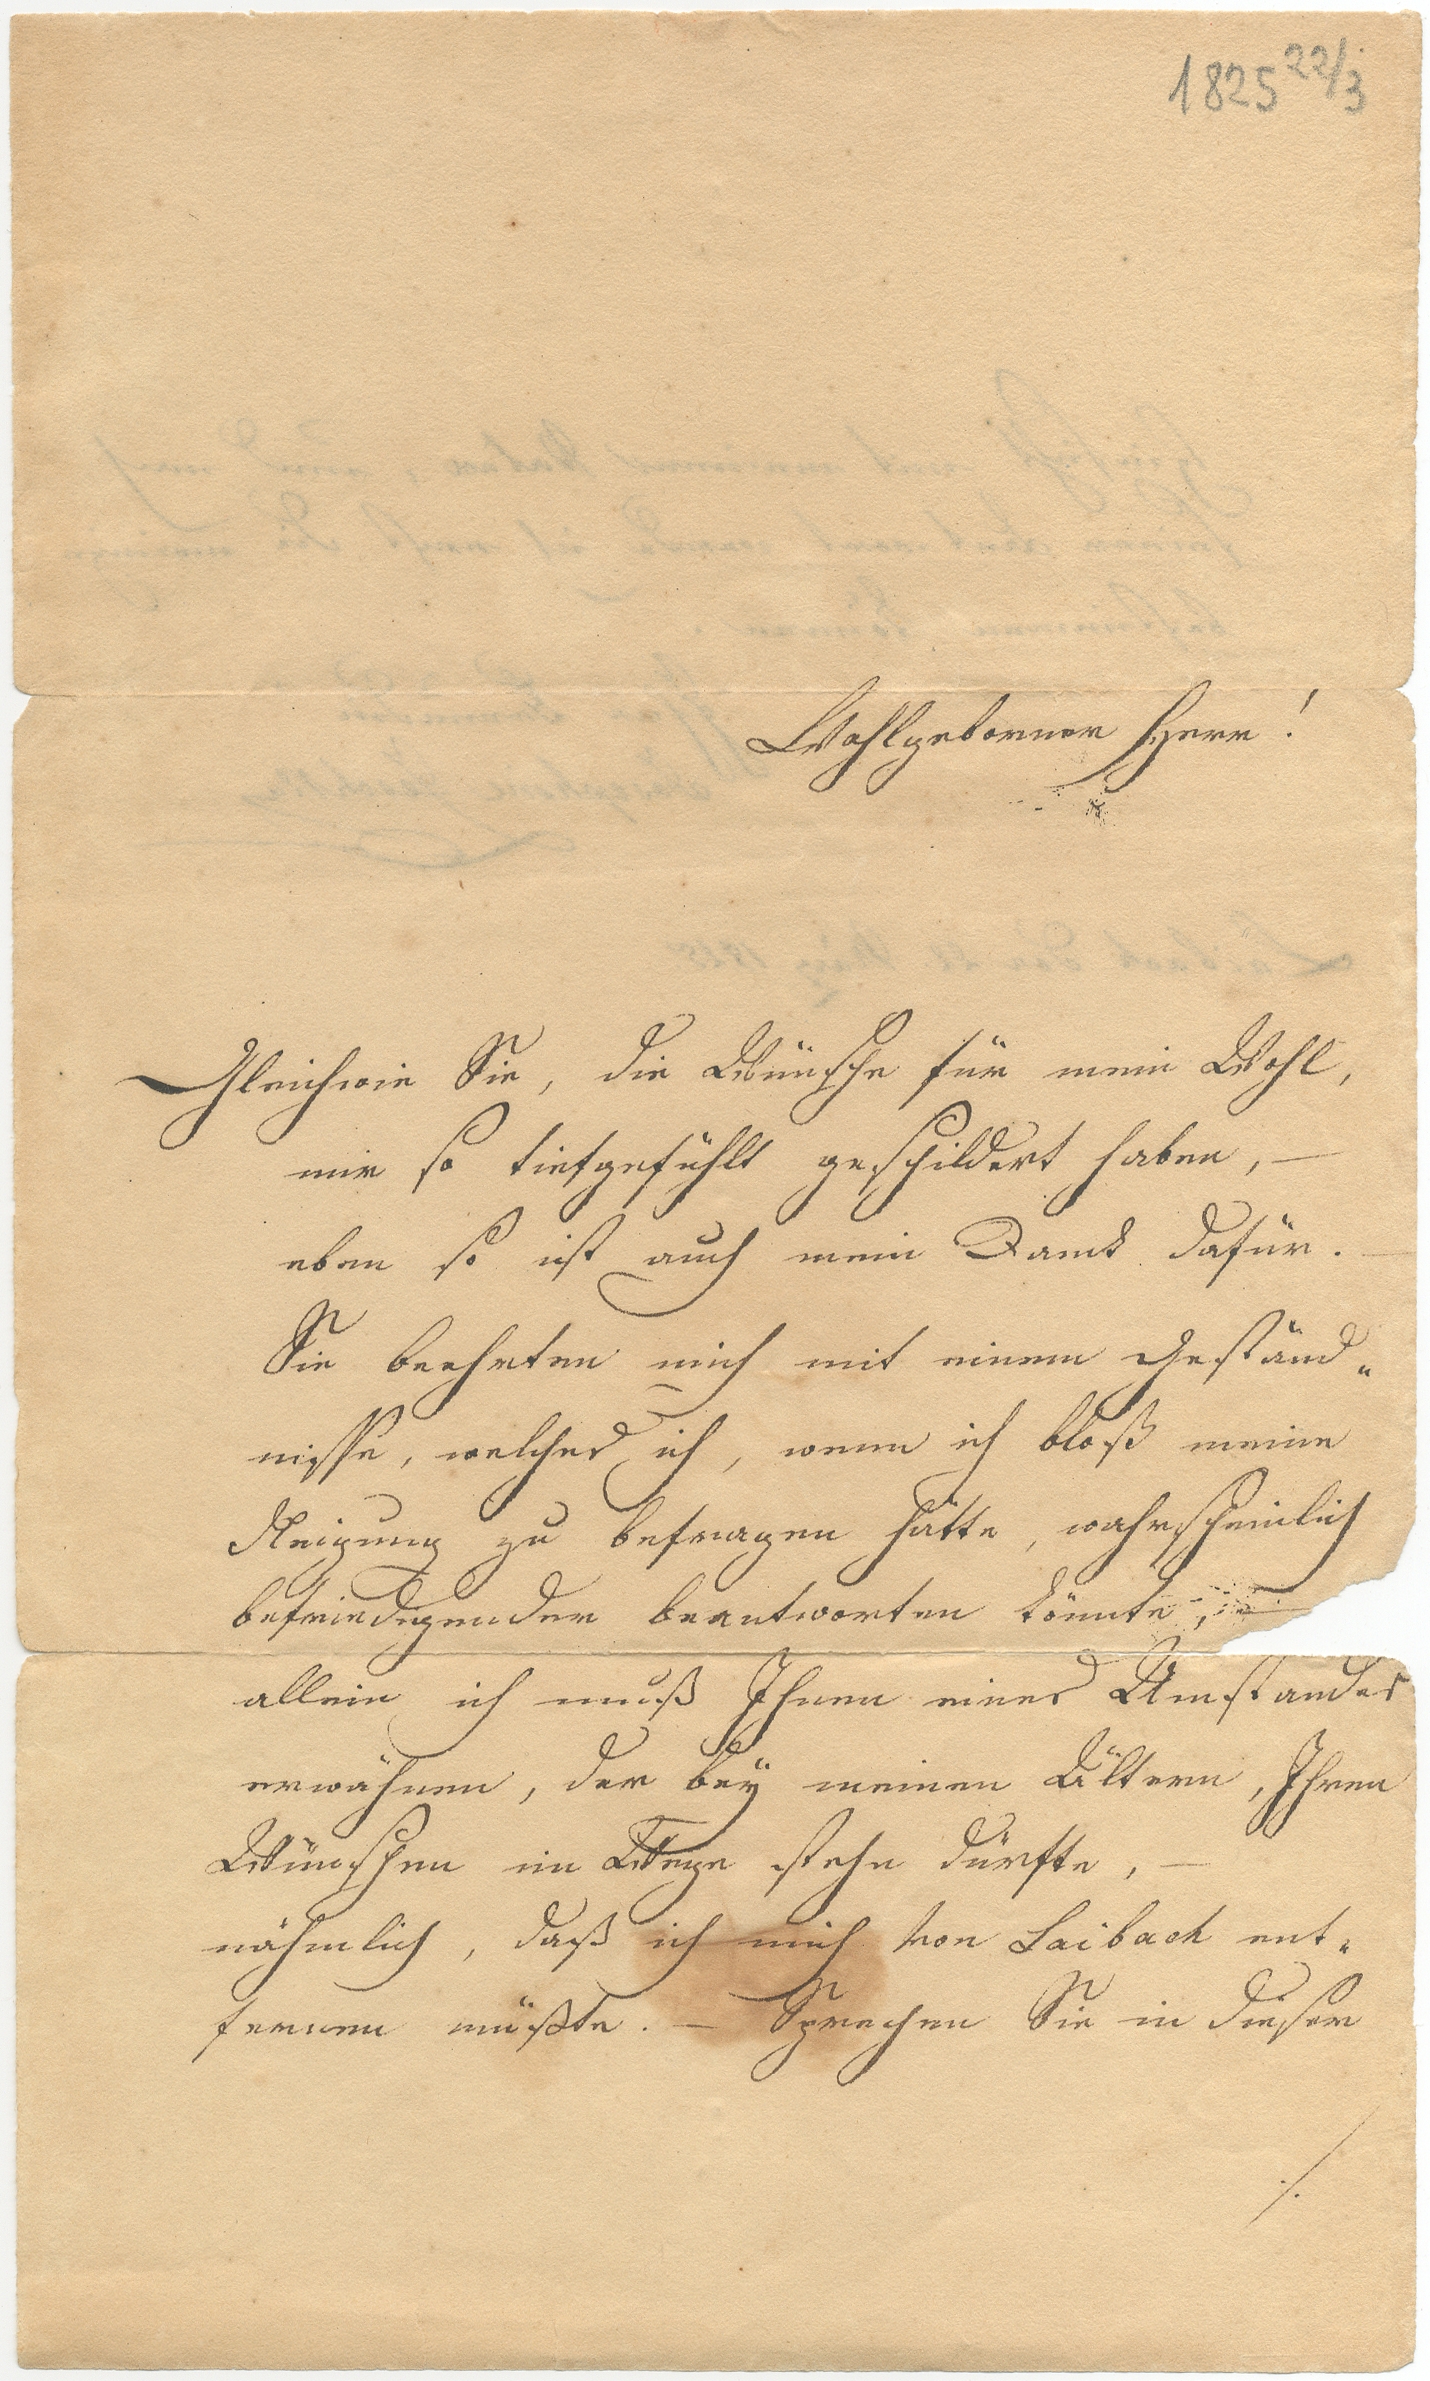 1825 22/3
Wohlgeborner Herr!
Gleichwie Sie, die Wünsche für mein Wohl,
mir so tiefgefühlt geschildert haben, —
eben so ist auch mein Dank dafür. —
Sie beehrten mich mit einem Geständ„
nisse, welches ich, wenn ich bloß meine
Neigung zu befragen hätte, wahrscheinlich
befriedigender beantworten könnte, —
allein ich muß Ihnen eines Umstandes
erwähnen, der bey meinen Ältern, Ihren
Wünschen im Wege stehn dürfte, —
nähmlich, daß ich mich von Laibach ent„
fernen müßte. — Sprechen Sie in dieser
./.